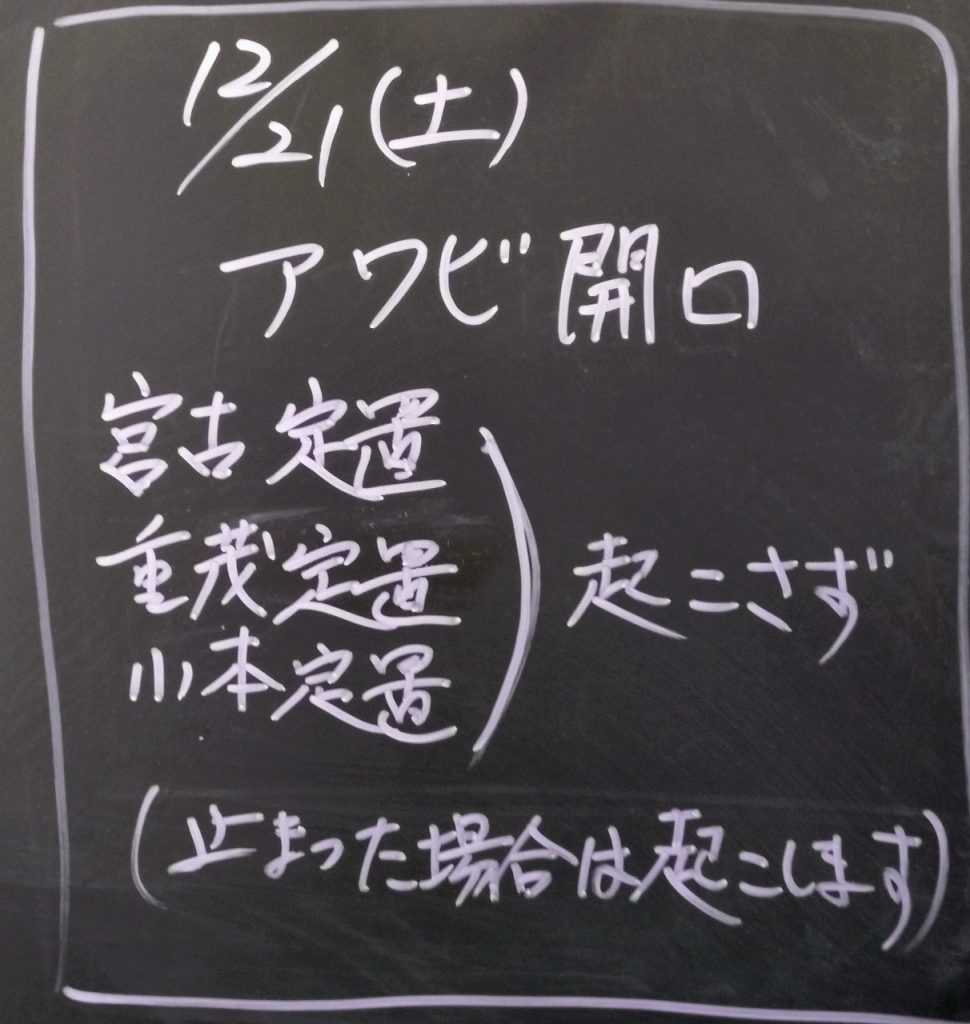 12/21(土)
アワビ開口
宮古定置
重茂定置
小本定置
起こさず
(止まった場合は起こします)